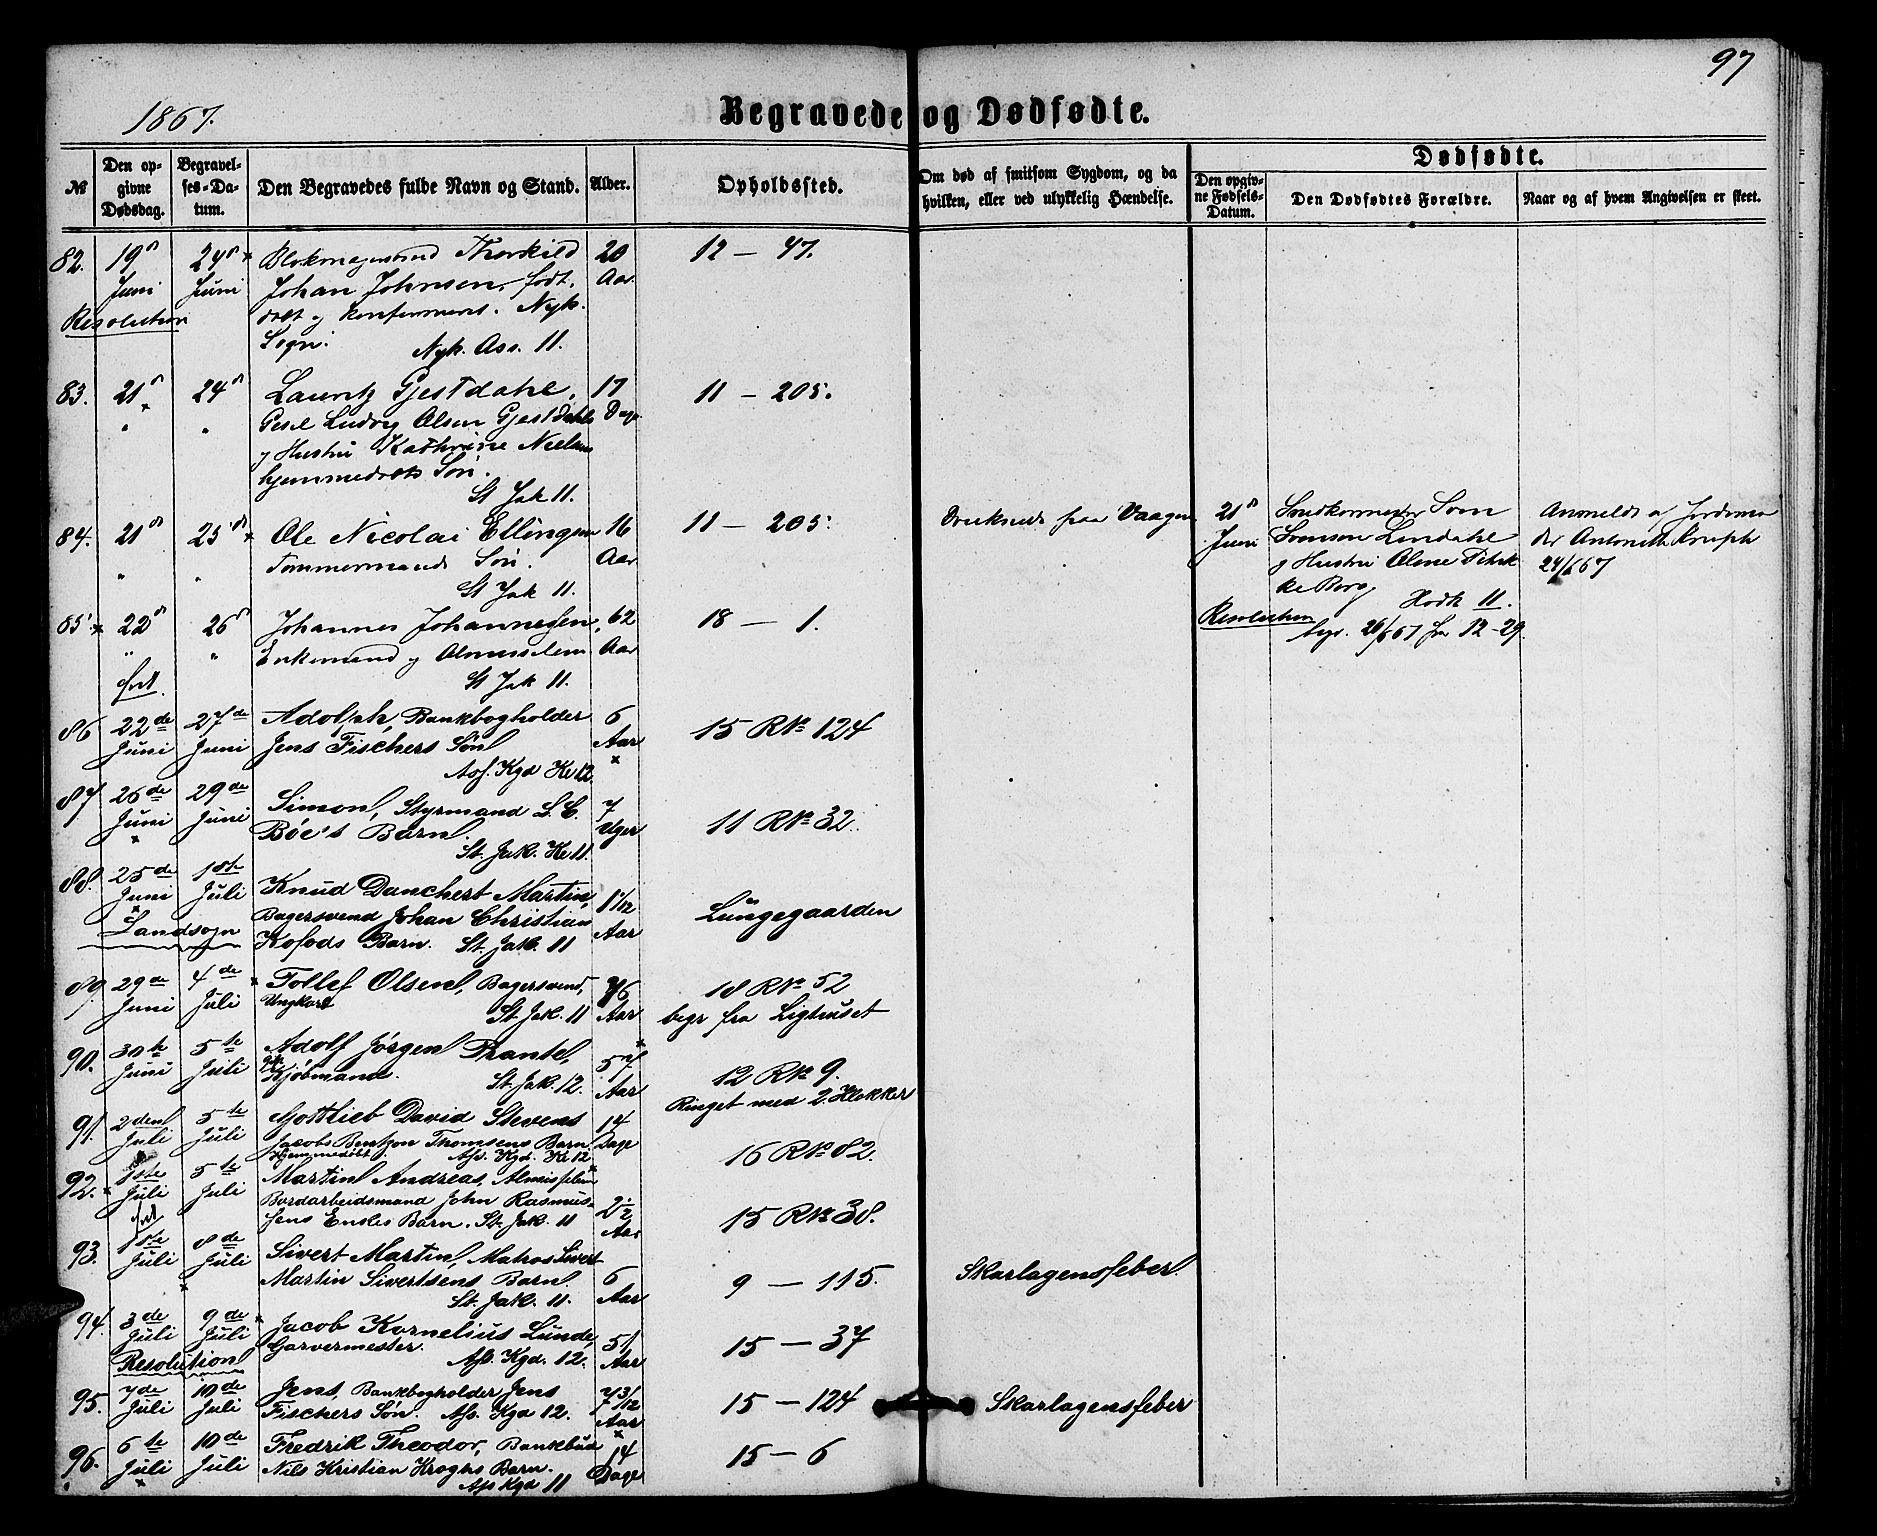 97
1867.
Begravede og Dødfødte.
№
Den op-
givne
Dødsdag.
Begravel-
ses-Da-
tum.
Den Begravedes fulde Navn og Stand.
Alder.
Opholdssted.
Om død af smitsom Sygdom, og da
hvilken, eller ved ulykkelig Hændelse.
Dødfødte.
Den opgiv-
ne Fødsels-
Datum.
Den Dødfødtes Forældre.
Naar og af hvem Angivelsen er skeet.
82. 19d 24d Blokmagersvend Thorkild 20 12 – 47.
Juni Juni Johan Johnsen, født, Aar
Resolution døbt og konfirmeret. Nyk.
Sogn. Nyk. Ass. 11.
83. 21d 24d Lauritz Gjestdahl, 17 11 – 205.
" " Ludvig Olsen Gjestdahls Dage
og Hustru Kathrine Nielsens
hjemmedøbte Søn.
St Jak 11.
84. 21d 25d Ole Nicolai Ellingsen 16 11 – 205. Druknede fra Vaagen
" " Tømmermands Søn. Aar
St Jak 11.
21d Juni
Lendahl
og Hustru Oline
Berg Hodk 11.
Resolution begr. 26/6 67 fra 12–29.
Anmeldt af Jordemo
der Antonette
24/6 67
85. 22d 26d Johannes Johannesen, 62 18 – 1.
" " Enkemand og Almisselem Aar
fort. St Jak 11.
86 22de 27de Adolph, Bankbogholder 6 15 R№ 124
Juni Juni Jens Fischers Søn Aar
Ass. Kgd Kl 12.
87 26de 29de Simon, Styrmand S. C. 7 11 R№ 32.
Juni Juni Böe's Barn. Uger
St. Jak. Kl 11.
88. 25de 1ste Knud Danchert Martin, 1 1/12 Lungegaarden
Juni Juli Bagersvend Johan Christian Aar
Landsogn Kofods Barn. St. Jak. 11
89. 29de 4de Tollef Olsen, Bagersvend, 76 18 R№ 52
Juni Juli Ungkarl St. Jak. 11 Aar begr fra Lighuset
90. 30te 5te Adolf Jørgen Trantel, 57 12 R№ 9.
Juni Juli Kjøbmand. St. Jak. 12. Aar Ringet med 2. Klokker
91. 2den 5te Gottlieb David Stevens 14 16 R№ 82.
Juli Juli Jacobs Bentzon Thomsens Barn Dage
Hjemmedøbt. Ass. Kgd. Kl 12
92. 1ste 5te Martin Andreas, Almisselem
Juli Juli Bordarbeidsmand John Rasmus- 2 1/2 15 R№ 38.
fort sens Enkes Barn. St. Jak. 11 Aar
93. 1ste 8de Sivert Martin, Matros Sivert
Juli Juli Martin Sivertsens Barn. 6 9 – 115. Skarlagensfeber.
St. Jak. 11. Aar
94. 3de 9de Jacob Kornelius Lunde, 51 15 – 37
Juli Juli Garvermester. Aar
Resolution Ass. Kgd. 12.
95. 7de 10de Jens, Bankbogholder Jens 7 3/12 15 – 124 Skarlagensfeber
Juli Juli Fischers Søn. Ass. Kgd 12. Aar
96. 6te 10de Fredrik Theodor, Bankbud 14 15 – 6
Juli Juli Nils Kristian Kroghs Barn. Dage
Ass Kgd 11